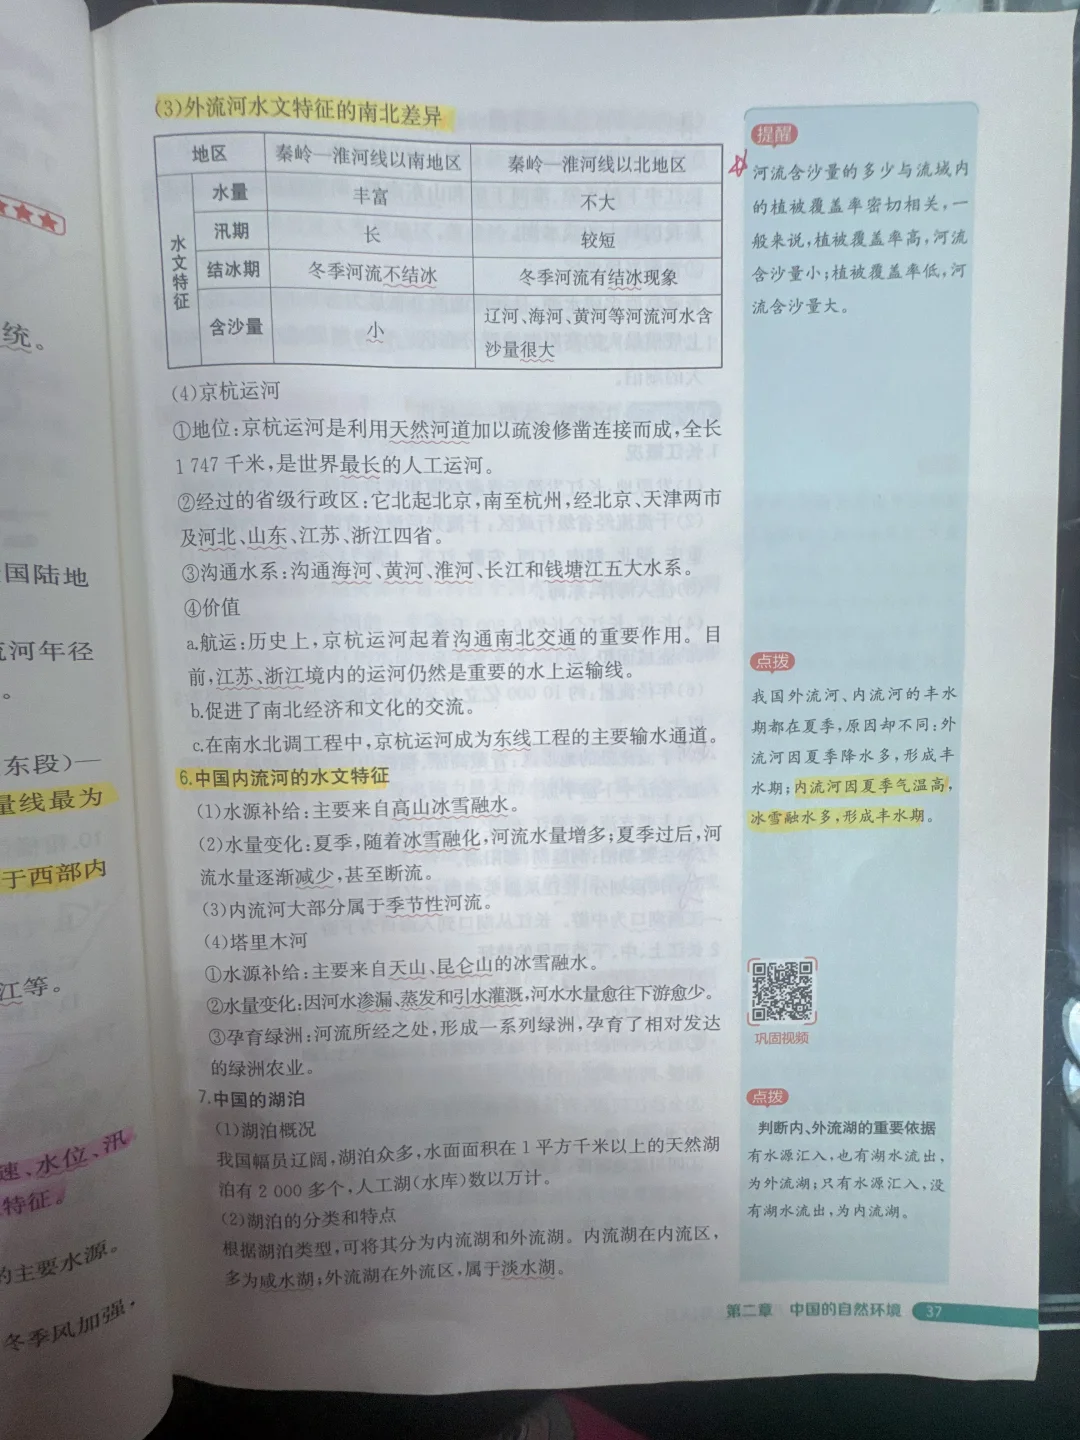 (3)外流河水文特征的南北差异
地区 秦岭—淮河线以南地区 秦岭—淮河线以北地区
水文特征
水量 丰富 不大
汛期 长 较短
结冰期 冬季河流不结冰 冬季河流有结冰现象
含沙量 小 辽河、海河、黄河等河流河水含
沙量很大
(4)京杭运河
①地位:京杭运河是利用天然河道加以疏浚修凿连接而成,全长
1 747 千米,是世界最长的人工运河。
②经过的省级行政区:它北起北京,南至杭州,经北京、天津两市
及河北、山东、江苏、浙江四省。
③沟通水系:沟通海河、黄河、淮河、长江和钱塘江五大水系。
④价值
a.航运:历史上,京杭运河起着沟通南北交通的重要作用。目
前,江苏、浙江境内的运河仍然是重要的水上运输线。
b.促进了南北经济和文化的交流。
c.在南水北调工程中,京杭运河成为东线工程的主要输水通道。
6.中国内流河的水文特征
(1)水源补给:主要来自高山冰雪融水。
(2)水量变化:夏季,随着冰雪融化,河流水量增多;夏季过后,河
流水量逐渐减少,甚至断流。
(3)内流河大部分属于季节性河流。
(4)塔里木河
①水源补给:主要来自天山、昆仑山的冰雪融水。
②水量变化:因河水渗漏、蒸发和引水灌溉,河水水量愈往下游愈少。
③孕育绿洲:河流所经之处,形成一系列绿洲,孕育了相对发达
的绿洲农业。
7.中国的湖泊
(1)湖泊概况
我国幅员辽阔,湖泊众多,水面面积在 1 平方千米以上的天然湖
泊有 2 000 多个,人工湖(水库)数以万计。
(2)湖泊的分类和特点
根据湖泊类型,可将其分为内流湖和外流湖。内流湖在内流区,
多为咸水湖;外流湖在外流区,属于淡水湖。
提醒
河流含沙量的多少与流域内
的植被覆盖率密切相关,一
般来说,植被覆盖率高,河流
含沙量小;植被覆盖率低,河
流含沙量大。
点拨
我国外流河、内流河的丰水
期都在夏季,原因却不同:外
流河因夏季降水多,形成丰
水期;内流河因夏季气温高,
冰雪融水多,形成丰水期。
巩固视频
点拨
判断内、外流湖的重要依据
有水源汇入,也有湖水流出,
为外流湖;只有水源汇入,没
有湖水流出,为内流湖。
第二章 中国的自然环境 37
统。
国陆地
流河年径
。
东段)—
量线最为
于西部内
江等。
速、水位、汛
特征。
的主要水源。
冬季风加强,